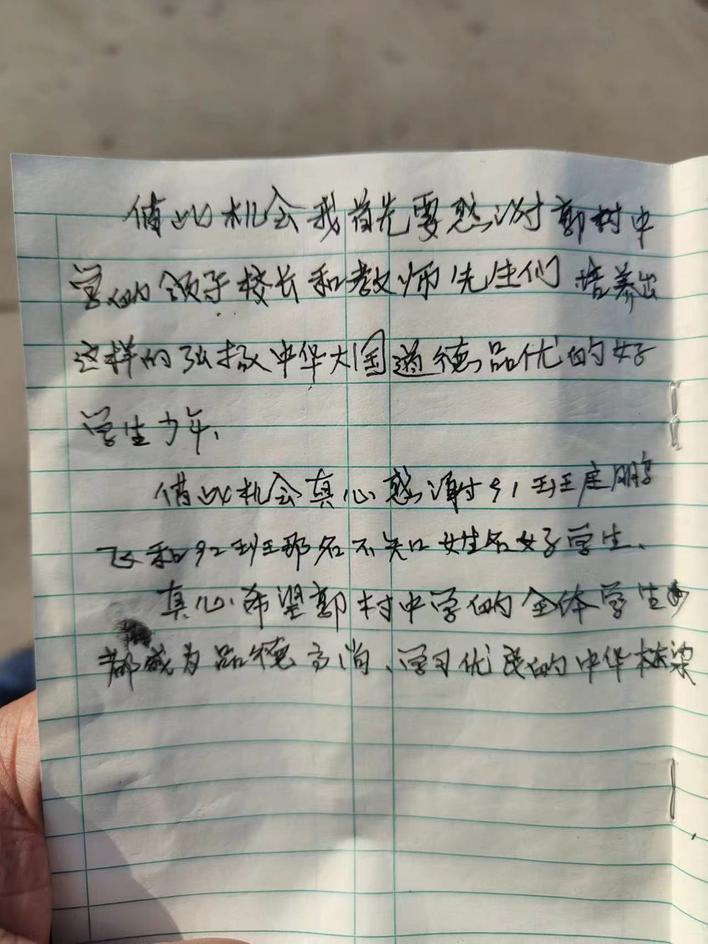 借此机会我首先要感谢郭村中
学的领导校长和教师先生们培养出
这样的弘扬中华大国道德品优的好
学生少年,
借此机会真心感谢91班座鹏
飞和92班那名不知女姓名好学生、
真心希望郭村中学的全体学生
都成为品德高尚、学习优良的中华栋梁